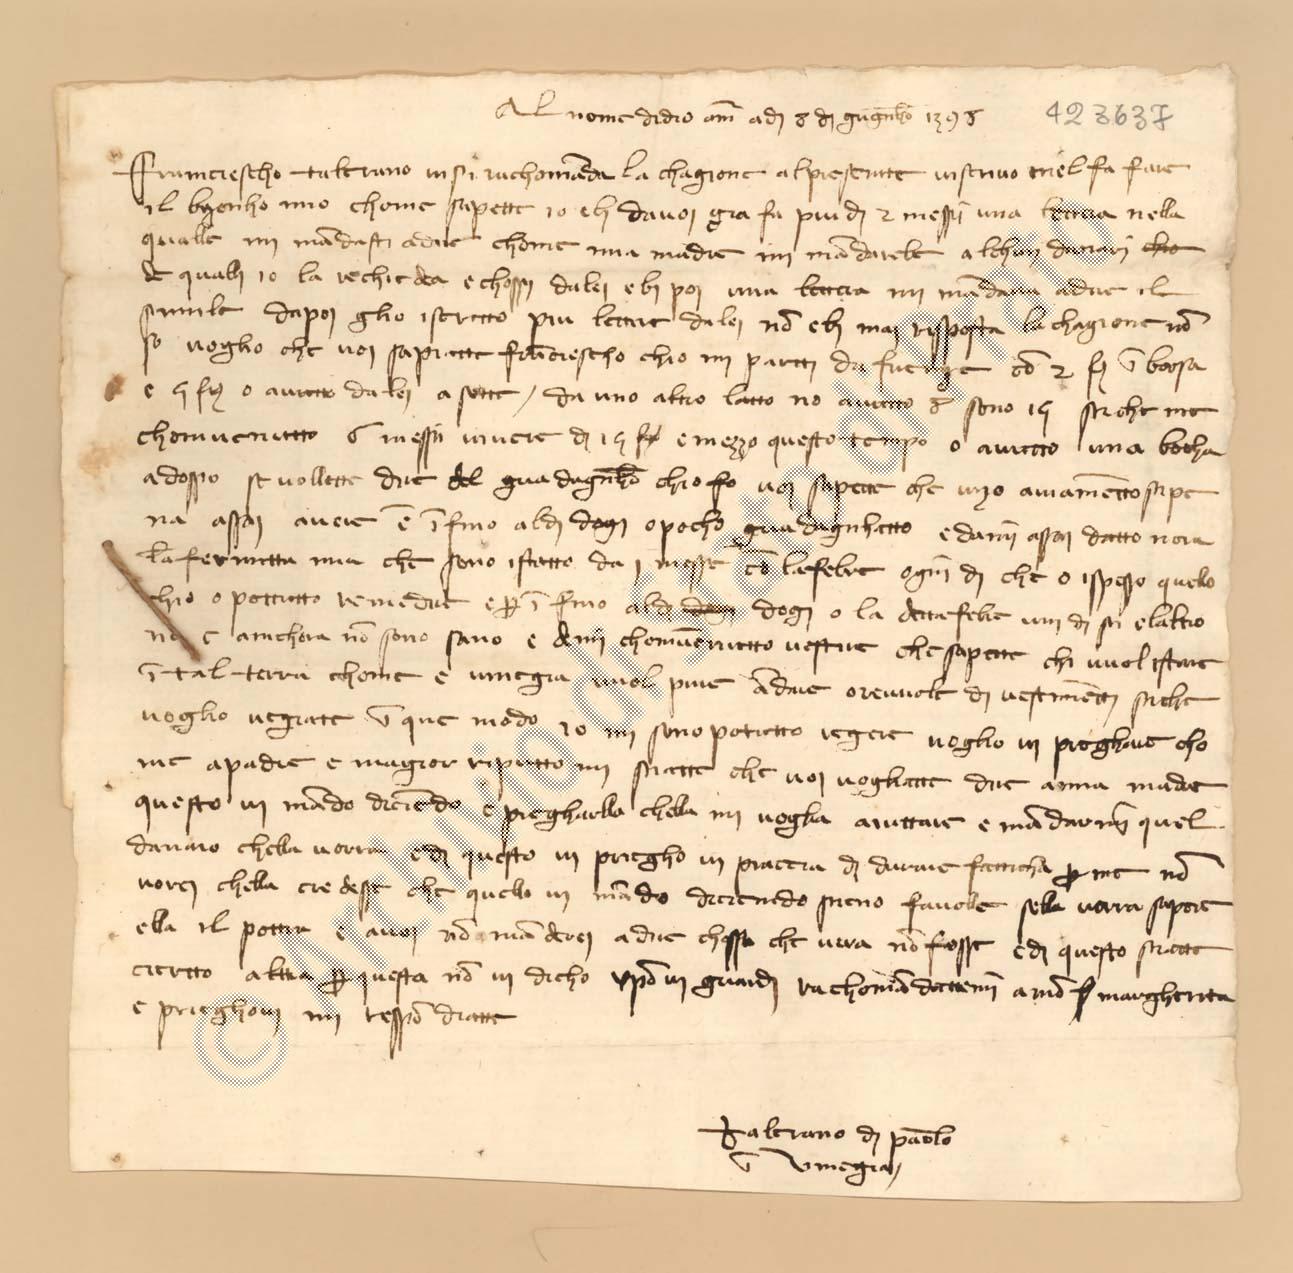 Al nome di dio am̅ adj 8 dj gugnho 1398
423637
Franciescho talerano vi si rachoma̅da la chagione al presentte vi scrivo mel fa fare
il bixonho mio chome sapette io ebj da voj gra fa piu dj 2 messi una lettera nella
qualle mi ma̅dasti a dire chome mia madre mi ma̅darebe alchuni danari
de qualli io la rechiedea e chossj da lej ebj poj una lettera mi ma̅dava a dire il
simile dapoj gli o iscritto piu lettere da lej no̅ ebj maj risposta la chagione no̅
so voglio che voj sapiatte franciescho chio mi partj da firenze co̅ 2 fj i̅ borsa
e 5 fj o autto da lej a sette / da uno altro latto no autto 8 sono 15 si che me
chonvenutto 6 messi vivere dj 15 fj e mezzo questo tempo o autto una bocha
adosso se vollette dire del guadagnho chio fo voj sapette che
assaj avere e i̅fino al dj dogj o pocho guadagnhatto e danj assaj datto nora
la fermitta mia che sono istatto da j messe co̅ la febre ognj dj che o ispesso quello
chio o pottutto remedire e p̱ i̅fino al dj dogj o la detta febre un dj si e laltro
no e anchora no̅ sono sano e demi chonve̅nutto vestire che sapette chi vuol istare
i̅ tal terra chome e vinegia vuol pure a̅dare orevole dj vestime̅tj siche
voglio vegiate i̅ que modo io mi sono potutto regere voglio vj preghare cho
me a padre e magior riputto mi siatte che voj vogliatte dire a mia madre
questo vi ma̅do diciendo e pregharlla chella mi voglia aiuttare e ma̅darmi quel
danaio chella vorra e dj questo vi priegho vi piaccia dj durare fatticha p̱ me no̅
vorej chella credesse che quello vi ma̅do diciendo sieno favole sella vorra sapere
ella il pottra e a voj no̅ ma̅derej a dire chossa che vera no̅ fosse e dj questo siatte
cierto altra p̱ questa no̅ vi dicho xp̅o vi guardj rachoma̅dattemi a mo̅ margherita
e prieghovj mi respo̅diatte
Talerano dj paolo
i̅ Vinegia /